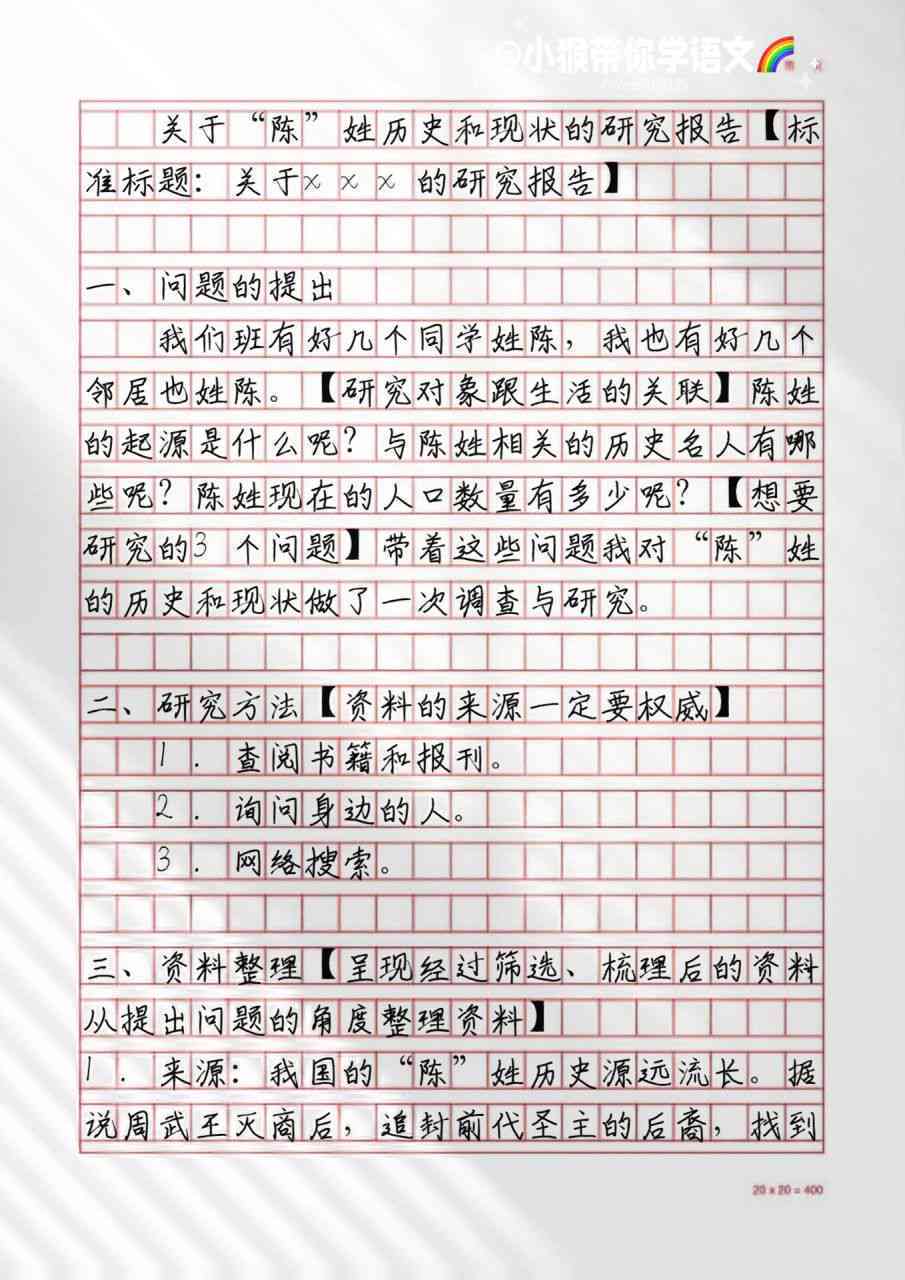 @小猴带你学语文
关于“陈”姓历史和现状的研究报告【标
准标题：关于x x x 的研究报告】
一、问题的提出
我们班有好几个同学姓陈，我也有好几个
邻居也姓陈。【研究对象跟生活的关联】陈姓
的起源是什么呢？与陈姓相关的历史名人有哪
些呢？陈姓现在的人口数量有多少呢？【想要
研究的3 个问题】带着这些问题我对“陈”姓
的历史和现状做了一次调查与研究。
二、研究方法【资料的来源一定要权威】
1. 查阅书籍和报刊。
2. 询问身边的人。
3. 网络搜索。
三、资料整理【呈现经过筛选、梳理后的资料
从提出问题的角度整理资料】
1. 来源：我国的“陈”姓历史源远流长。据
说周武王灭商后，追封前代圣主的后裔，找到
20 x 20 = 400